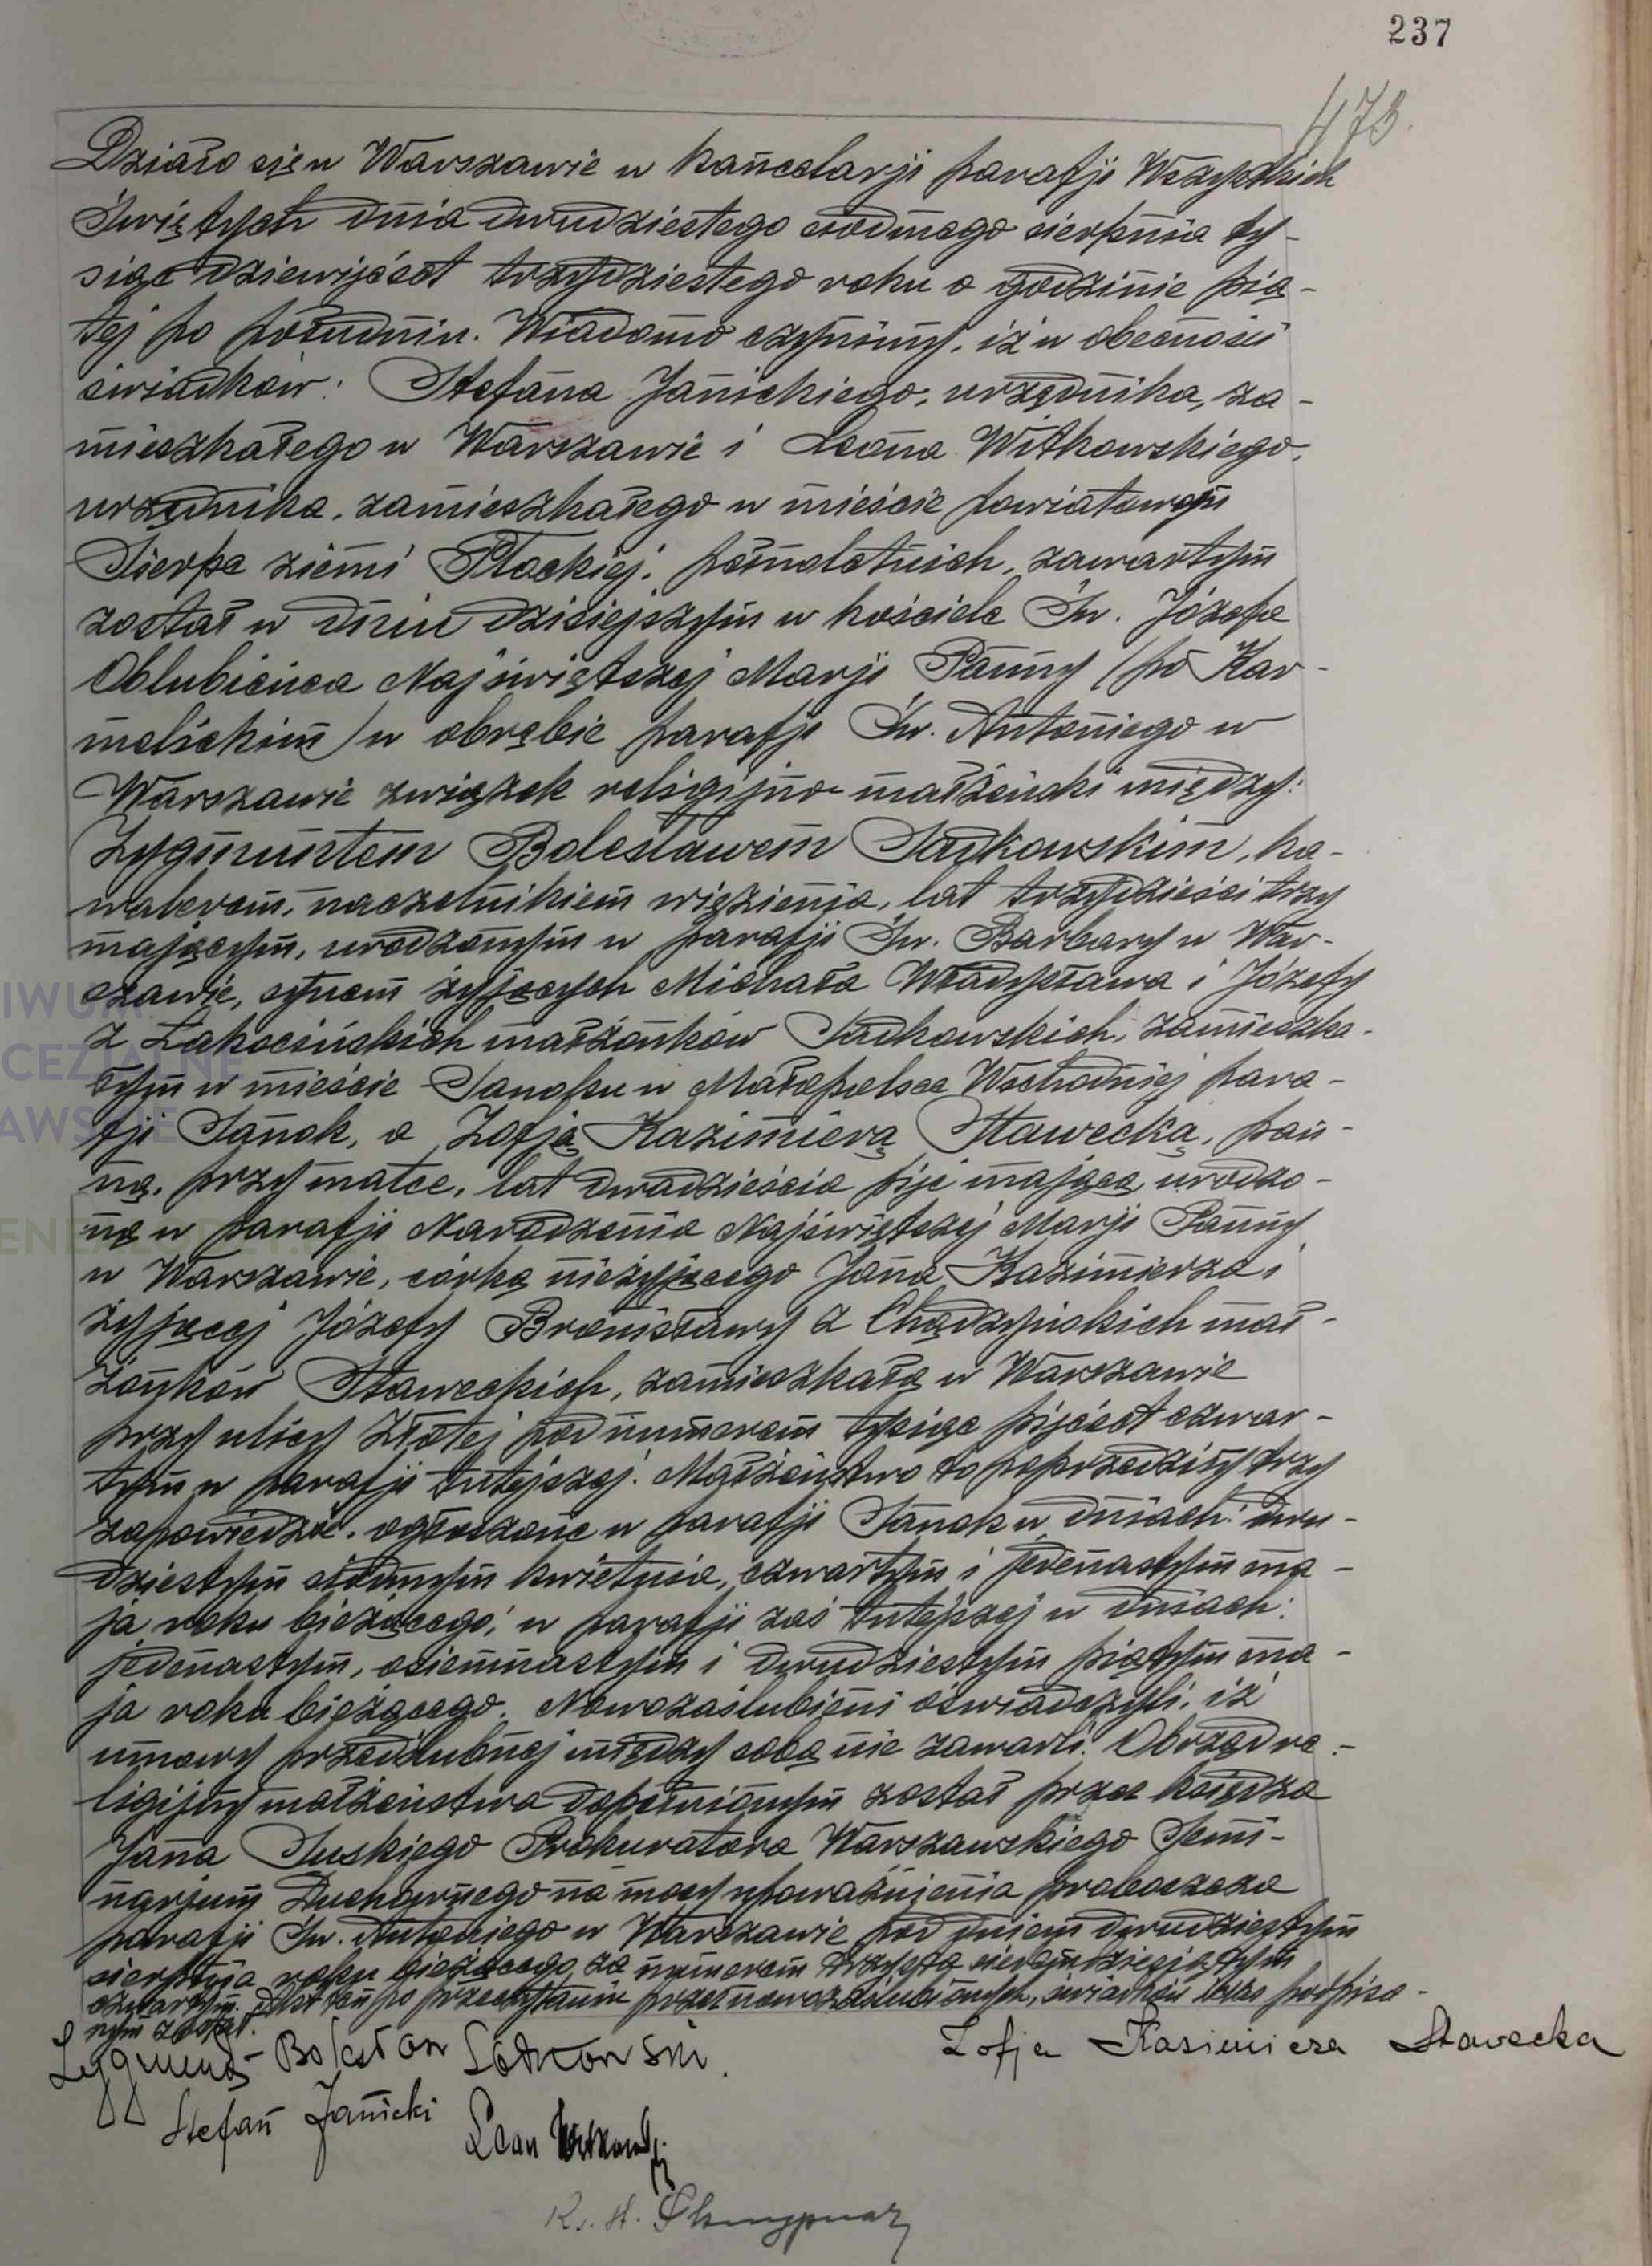 237
473.
Działo się w Warszawie w kancelarji parafji Wszystkich
Świętych dnia dwudziestego siódmego sierpnia ty-
siąc dziewięćset trzydziestego roku o godzinie pią-
tej po południu. Wiadomo czynimy, iż w obecności
świadków: Stefana Janickiego, urzędnika, za-
mieszkałego w Warszawie i Leona Witkowskiego,
urzędnika, zamieszkałego w mieście powiatowym
Sierpc ziemi Płockiej, pełnoletnich, zawartym
został w dniu dzisiejszym w kościele Św. Józefa
Oblubieńca Najświętszej Marji Panny (po Kar-
melickim) w obrębie parafji Św. Antoniego w
Warszawie związek religijno-małżeński między:
Zygmuntem Bolesławem Sadkowskim, ka-
walerem, naczelnikiem więzienia, lat trzydzieści trzy
mającym, urodzonym w parafji Św. Barbary w War-
szawie, synem żyjących Michała Władysława i Józefy
z Łakocińskich małżonków Sadkowskich, zamieszka-
łym w mieście Sanoku w Małopolsce Wschodniej para-
fji Sanok, a Zofją Kazimierą Sławecką, pan-
ną, przy matce, lat dwadzieścia pięć mającą, urodzo-
ną w parafji Narodzenia Najświętszej Marji Panny
w Warszawie, córką nieżyjącego Jana Kazimierza i
żyjącej Józefy Bronisławy z Chądzyńskich mał-
żonków Sławeckich, zamieszkałą w Warszawie
przy ulicy Złotej pod numerem tysiąc pięćset czwar-
tym w parafji tutejszej. Małżeństwo to poprzedziły trzy
zapowiedzie, ogłoszone w parafji Sanok w dniach: dwu-
dziestym siódmym kwietnia, czwartym i jedenastym ma-
ja roku bieżącego; w parafji zaś tutejszej w dniach:
jedenastym, osiemnastym i dwudziestym piątym ma-
ja roku bieżącego. Nowozaślubieni oświadczyli, iż
umowy przedślubnej między sobą nie zawarli. Obrzęd re-
ligijny małżeństwa dopełnionym został przez księdza
Jana Suskiego Prokuratora Warszawskiego Semi-
narjum Duchownego na mocy upoważnienia proboszcza
parafji Św. Antoniego w Warszawie pod dniem dwudziestym
sierpnia roku bieżącego za numerem trzysta siedemdziesiątym
czwartym. Akt ten po przeczytaniu przez nowozaślubionych, świadków i Nas podpisa-
nym został.
Zygmunt Bolesław Sadkowski.
Zofja Kazimiera Sławecka
Stefan Janicki
Leon Witkowski
Ks. H.